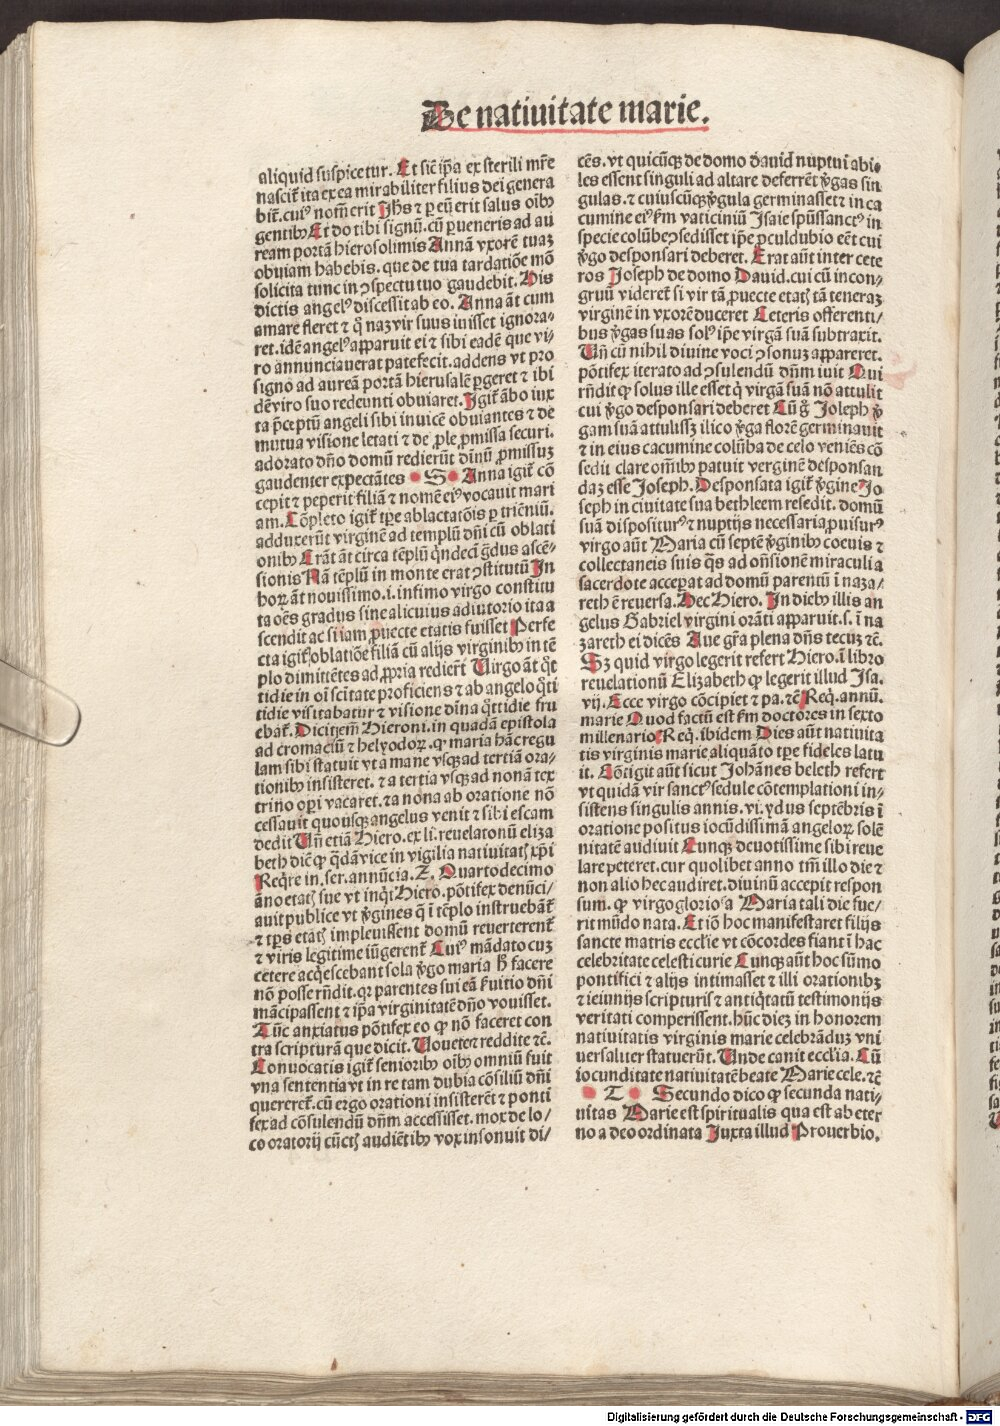 De natiuitate marie.
aliquid suspicetur. Et sic̄ ip̄a ex sterili mr̄e
nascit᷑ ita ex ea mirabiliter filius dei genera
bit᷑. cui⁹ nom̄ erit Jhs ⁊ ꝑ eū erit salus oībꝫ
gentibꝫ Et do tibi signū. cū ꝑueneris ad au
ream portā hierosolimis Annā vxorē tuaꝫ
obuiam habebis. que de tua tardatiōe mō
solicita tunc in ↄspectu tuo gaudebit. His
dictis angel⁹ discessit ab eo. Anna āt cum
amare fleret ⁊ q̊ naꝫ vir suus iuisset ignora⸗
ret. idē angel⁹ apparuit ei ⁊ sibi eadē que vi⸗
ro annunciauerat patefecit. addens vt pro
signo ad aureā portā hierusalē ꝑgeret ⁊ ibi
dē viro suo redeunti obuiaret. Igit᷑ ābo iux
ta p̄ceptū angeli sibi inuicē obuiantes ⁊ de
mutua visione letati ⁊ de ꝓle ꝓmissa securi.
adorato dn̄o domū redierūt dīnū ꝓmissuꝫ
gaudenter expectātes S Anna igit᷑ cō
cepit ⁊ peperit filiā ⁊ nomē ei⁹ vocauit mari
am. Cōpleto igit᷑ tꝑe ablactatōis ꝑ triēniū.
adduxerūt virginē ad templū dn̄i cū oblati
onibꝫ Erāt āt circa tēplū q̄ndecī g̊dus ascē⸗
sionis Nā tēplū in monte erat ↄstitutū In
hoꝝ āt nouissimo .i. infimo virgo constitu
ta oēs gradus sine alicuius adiutorio ita a
scendit ac si iam ꝓuecte etatis fuisset Perfe
cta igit᷑ oblatiōe filiā cū alijs virginibꝫ in tē
plo dimittētes ad ꝓpria redierūt Uirgo āt q̊t
tidie in oī scītate proficiens ⁊ ab angelo q̊ti
tidie visitabatur ⁊ visione dīna q̊ttidie fru
ebat᷑. Dicit em̄ Hieroni. in quadā epistola
ad cromaciū ⁊ helyodoꝝ. ꝙ maria hāc regu
lam sibi statuit vt a mane vsqꝫ ad tertiā ora⸗
tionibꝫ insisteret. ⁊ a tertia vsqꝫ ad nonā tex
trino oꝑi vacaret. ⁊ a nona ab oratione nō
cessauit quousqꝫ angelus venit ⁊ sibi escam
dedit Un̄ etiā Hiero. ex li. reuelatonū eliza
beth dicē ꝙ q̄dā vice in vigilia natiuitatꝭ xp̄i
Req̄re in. ser. annūcia. Z. Quartodecimo
āno etatꝭ sue vt inq̇t Hiero. pōtifex denūci⸗
auit publice vt v̄gines q̄ ī tēplo instruebāt᷑
⁊ tp̄s etatꝭ impleuissent domū reuerterent᷑
⁊ viris legitime iūgerent᷑ Cui⁹ mādato cuꝫ
cetere acq̇escebant sola v̊go maria h̄ facere
nō posse rn̄dit. qꝛ parentes sui eā ẜuitio dn̄i
mācipassent ⁊ ip̄a virginitatē dn̄o vouisset.
Tūc anxiatus pōtifex eo ꝙ nō faceret con
tra scripturā que dicit. Uouete ⁊ reddite ⁊c̄.
Conuocatis igit᷑ senioribꝫ oībꝫ omniū fuit
vna sententia vt in re tam dubia cōsiliū dn̄i
quereret᷑. cū ergo orationi insisterēt ⁊ ponti
fex ad cōsulendū dn̄m accessisset. mox de lo⸗
co oratorij cūctꝭ audiētibꝫ vox insonuit di⸗
cēs. vt quicūqꝫ de domo dauid nuptui abi⸗
les essent singuli ad altare deferrēt v̊gas sin
gulas. ⁊ cuiuscūqꝫ v̊gula germinasset ⁊ in ca
cumine ei⁹ ẜm vaticiniū Isaie spūssanct⁹ in
specie colūbe ↄsedisset ip̄e ꝓculdubio eēt cui
v̊go desponsari deberet. Erat aūt inter cete
ros Joseph de domo Dauid. cui cū incon⸗
gruū videret᷑ si vir tā ꝓuecte etatꝭ tā teneraꝫ
virginē in vxorē duceret Ceteris offerenti⸗
bus v̊gas suas sol⁹ ip̄e virgā suā subtraxit.
Un̄ cū nihil diuine voci ↄsonuꝫ appareret.
pōtifex iterato ad ↄsulendū dn̄m iuit Qui
rn̄dit ꝙ solus ille esset q̇ virgā suā nō attulit
cui v̊go desponsari deberet Cū g̊ Joseph v̊
gam suā attulissꝫ ilico v̊ga florē germinauit
⁊ in eius cacumine colūba de celo veniēs cō
sedit clare om̄ibꝫ patuit verginē desponsan
daꝫ esse Joseph. Desponsata igit᷑ v̊gine Jo
seph in ciuitate sua bethleem resedit. domū
suā dispositur⁹ ⁊ nuptijs necessaria ꝓuisur⁹
virgo aūt Maria cū septē v̊ginibꝫ coeuis ⁊
collectaneis suis q̄s ad on̄sionē miraculi a
sacerdote acceꝑat ad domū parentū ī naza⸗
reth ē reuersa. Hec Hiero. In diebꝫ illis an
gelus Gabriel virgini orāti apparuit. s. ī na
zareth ei dicēs Aue gr̄a plena dn̄s tecuꝫ ⁊c̄.
Sꝫ quid virgo legerit refert Hiero. ī libro
reuelationū Elizabeth ꝙ legerit illud Isa.
vij. Ecce virgo cōcipiet ⁊ pa. ⁊c̄ Req̇. annū.
marie Quod factū est ẜm doctores in sexto
millenario Req̇. ibidem Dies aūt natiuita
tis virginis marie aliquāto tꝑe fideles latu
it. Cōtigit aūt sicut Johānes beleth refert
vt quidā vir sanct⁹ sedule cōtemplationi in⸗
sistens singulis annis. vi. ydus septēbris ī
oratione positus iocūdissimā angeloꝝ solē
nitatē audiuit Cunqꝫ deuotissime sibi reue
lare peteret. cur quolibet anno tm̄ illo die ⁊
non alio hec audiret. diuinū accepit respon
sum. ꝙ virgo gloriosa Maria tali die fue⸗
rit mūdo nata. Et iō hoc manifestaret filijs
sancte matris eccl̄ie vt cōcordes fiant ī hac
celebritate celesti curie Cunqꝫ aūt hoc sūmo
pontifici ⁊ alijs intimasset ⁊ illi orationibꝫ
⁊ ieiunijs scripturis ⁊ antiq̇tatū testimonijs
veritati comperissent. hūc dieꝫ in honorem
natiuitatis virginis marie celebrāduꝫ vni
uersaliter statuerūt. Unde canit eccl̄ia. Cū
iocunditate natiuitatē beate Marie cele. ⁊c̄
T Secundo dico ꝙ secunda nati⸗
uitas Marie est spiritualis qua est ab eter
no a deo ordinata Juxta illud Prouerbio.
Digitalisierung gefördert durch die Deutsche Forschungsgemeinschaft - DFG